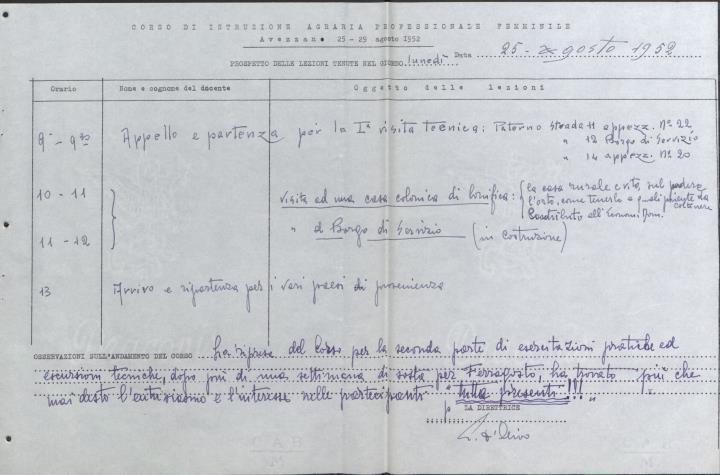 CORSO DI ISTRUZIONE AGRARIA PROFESSIONALE FEMMINILE
Avezzano 25 - 29 agosto 1952
PROSPETTO DELLE LEZIONI TENUTE NEL GIORNO lunedì Data 25 - agosto 1952
Orario Nome e cognome del docente Oggetto delle lezioni
9 - 9³⁰ Appello e partenza per la Iª visita tecnica: Paterno strada 11 appezz. Nº 22
" 12 Borgo di Servizio
" 14 appezz. Nº 20
10 - 11 visita ad una casa colonica di bonifica: la casa rurale e vito, sul podere
l'orto, come tenerlo e quali piante da coltivare
Contributo all'Econom. Dom.
11 - 12 " al Borgo di Servizio (in costruzione)
13 Arrivo e ripartenza per i vari paesi di provenienza
OSSERVAZIONI SULL'ANDAMENTO DEL CORSO La ripresa del Corso per la seconda parte di esercitazioni pratiche ed
escursioni tecniche, dopo più di una settimana di sosta per Ferragosto, ha trovato più che
mai desto l'entusiasmo e l'interesse nelle partecipanti "tutte presenti!!!"
LA DIRETTRICE